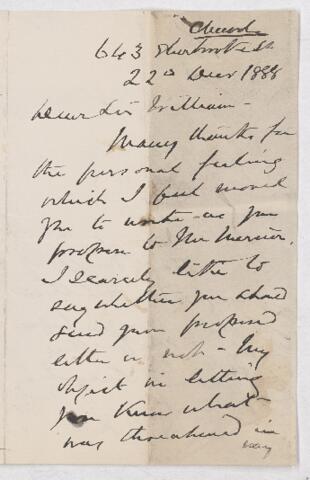 643 Sherbrooke St
22nd Decr 1888
Dear Sir William -
Many thanks for
the personal feeling
which I feel moved
you to write as you
propose to Mr Mercier.
I scarcely like to
say whether you should
send your proposed
letter or not - My
object in letting
you know what
was threatened in